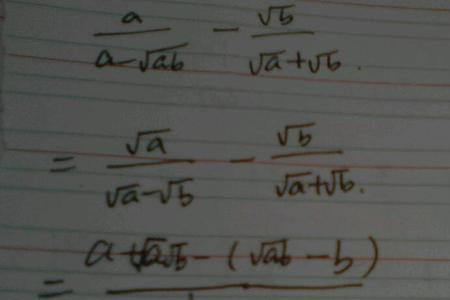 a/(a-√ab) - √b/(√a+√b).
= √a/(√a-√b) - √b/(√a+√b).
= a+√a√b-(√ab-b)